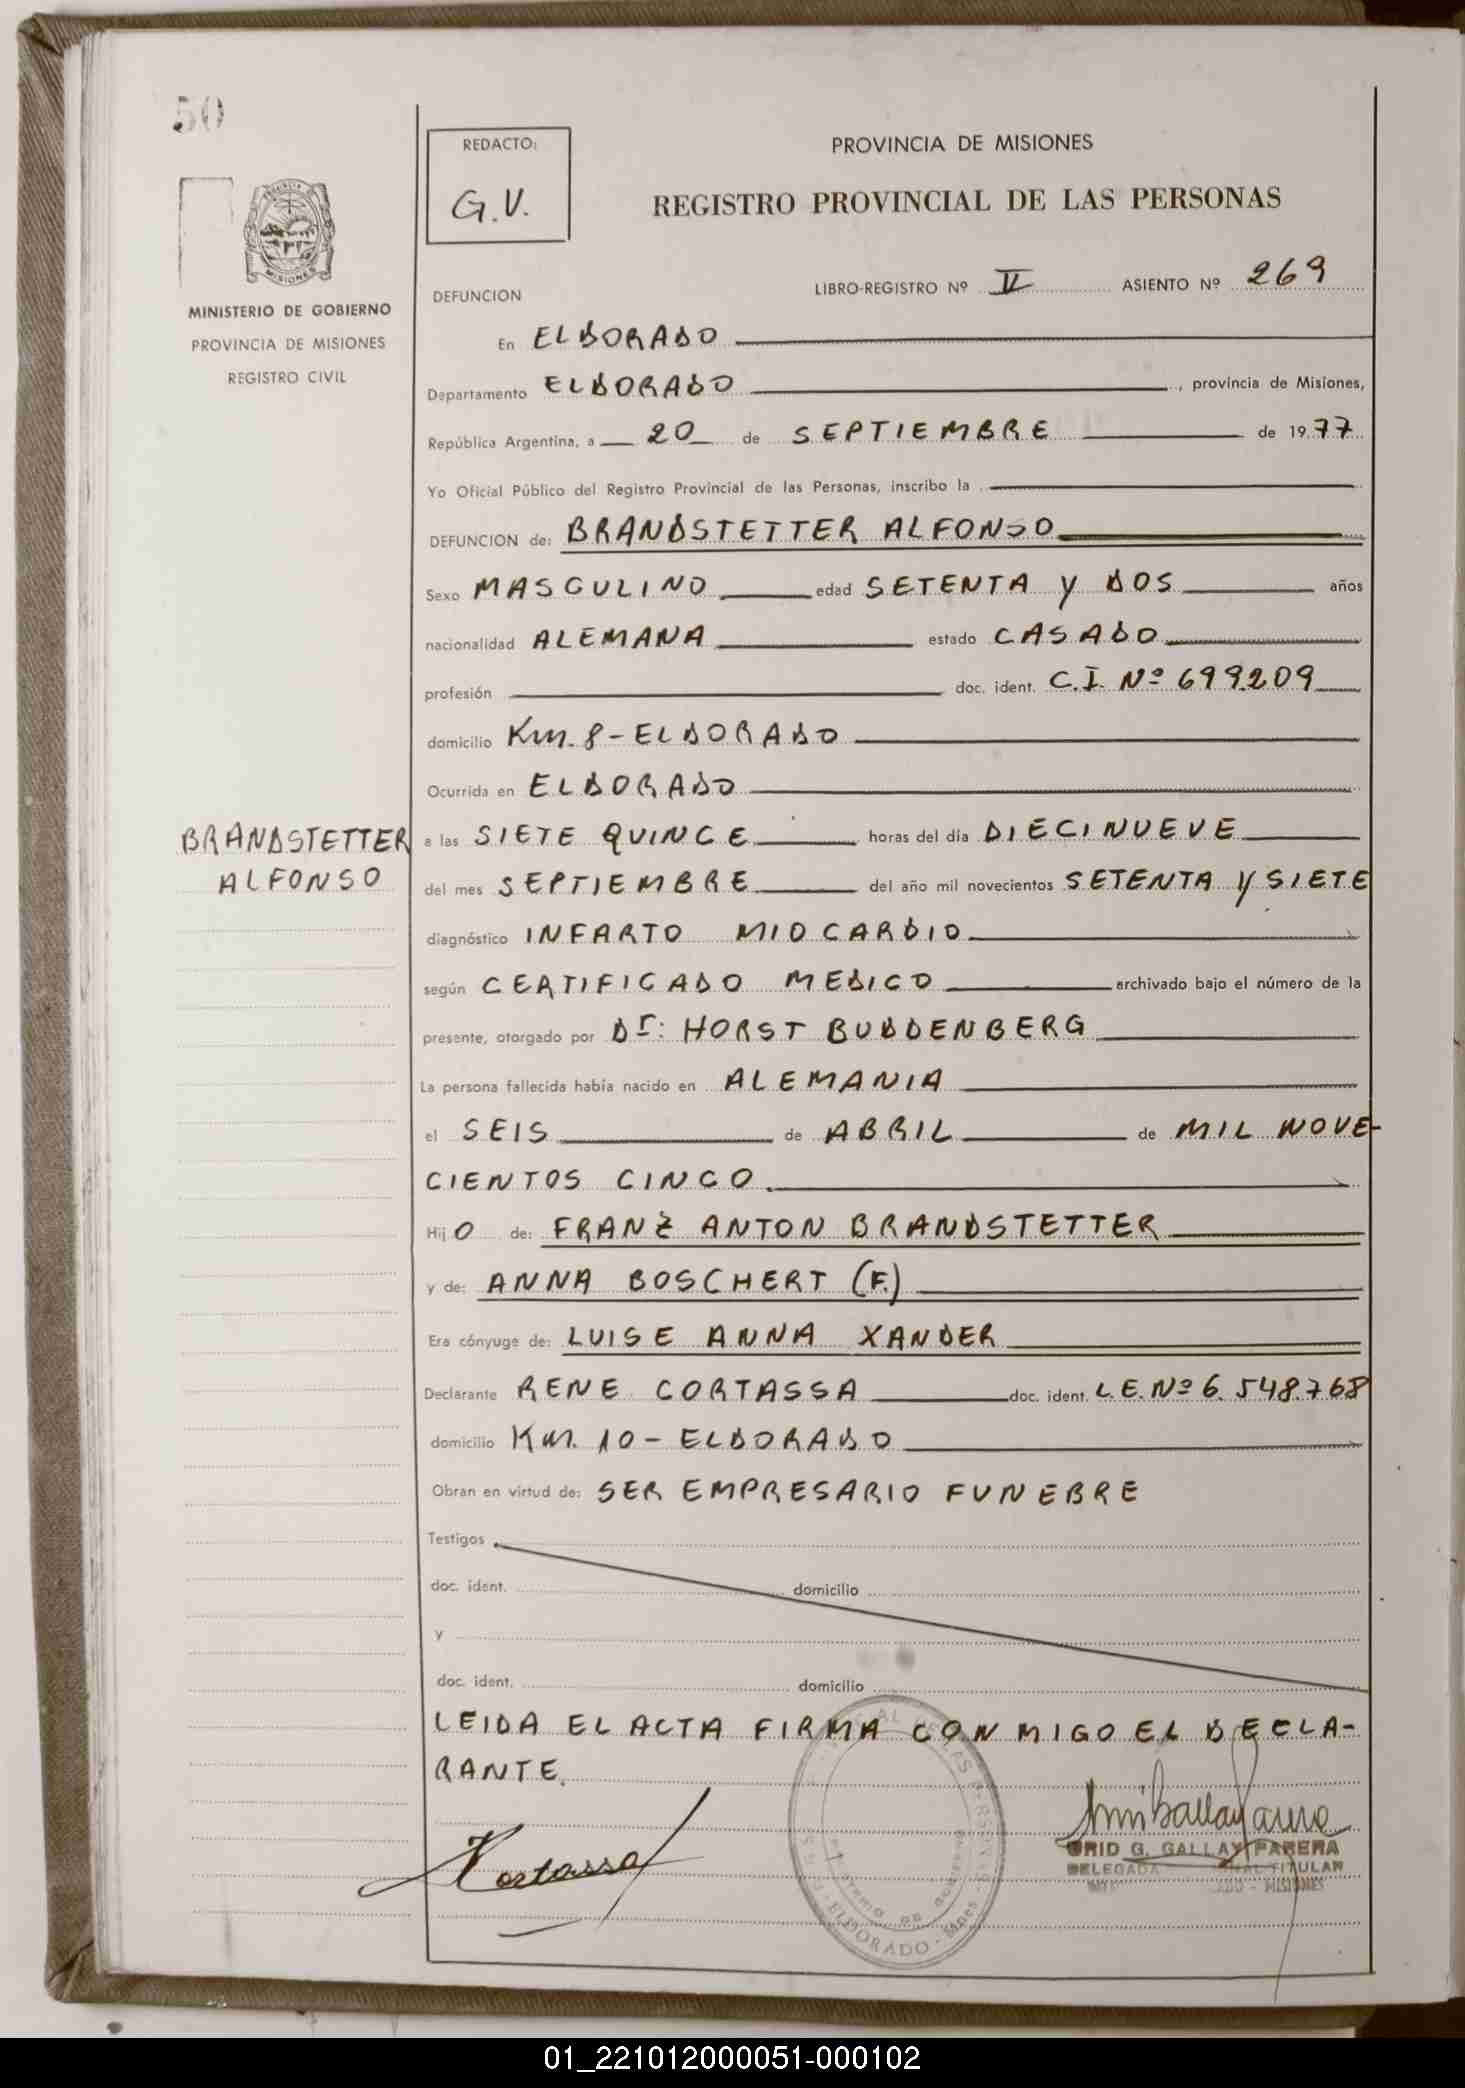 50
REDACTO:
G.V.
PROVINCIA DE MISIONES
REGISTRO PROVINCIAL DE LAS PERSONAS
MISIONES
MINISTERIO DE GOBIERNO
PROVINCIA DE MISIONES
REGISTRO CIVIL
DEFUNCION
LIBRO-REGISTRO Nº II ASIENTO Nº 269
En ELDORADO
Departamento ELDORADO, provincia de Misiones,
República Argentina, a 20 de SEPTIEMBRE de 1977
Yo Oficial Público del Registro Provincial de las Personas, inscribo la
DEFUNCION de: BRANDSTETTER ALFONSO
Sexo MASCULINO edad SETENTA Y DOS años
nacionalidad ALEMANA estado CASADO
profesión doc. ident. C.I. Nº 699.209
domicilio Km. 8 - ELDORADO
Ocurrida en ELDORADO
BRANDSTETTER
ALFONSO
a las SIETE QUINCE horas del día DIECINUEVE
del mes SEPTIEMBRE del año mil novecientos SETENTA Y SIETE
diagnóstico INFARTO MIOCARDIO
según CERTIFICADO MEDICO archivado bajo el número de la
presente, otorgado por Dr: HORST BUDDENBERG
La persona fallecida había nacido en ALEMANIA
el SEIS de ABRIL de MIL NOVE-
CIENTOS CINCO
Hijo de: FRANZ ANTON BRANDSTETTER
y de: ANNA BOSCHERT (F.)
Era cónyuge de: LUISE ANNA XANDER
Declarante RENE CORTASSA doc. ident. L.E. Nº 6.548.768
domicilio Km. 10 - ELDORADO
Obran en virtud de: SER EMPRESARIO FUNEBRE
Testigos
doc. ident. domicilio
y
doc. ident. domicilio
LEIDA EL ACTA FIRMA CONMIGO EL DECLA-
RANTE.
Cortassa
GRID G. GALLAY PARERA
DELEGADA TITULAR
MISIONES
ELDORADO - Mnes
01_221012000051-000102